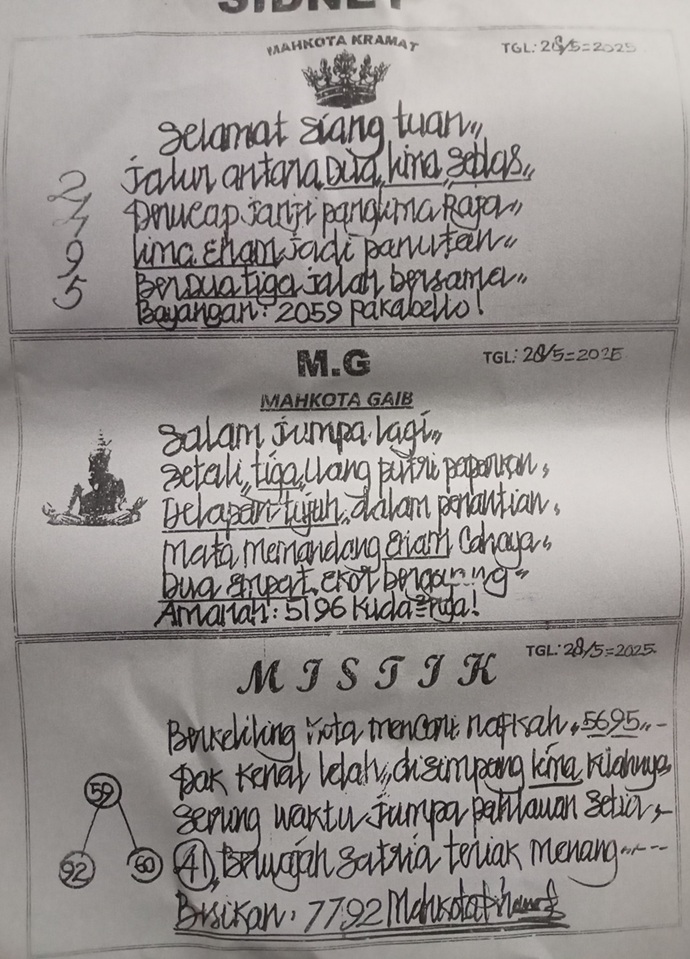 SIDNEY
MAHKOTA KRAMAT
TGL: 28/5=2025
Selamat siang tuan,,
Jalur antara Dua, lima, sebelas,,
Diucap janji panglima Raja,,
lima, Enam, jadi panutan,,
Berdua tiga jalan bersama,,
Bayangan: 2059 pakabello!
2
7
9
5
M.G
TGL: 28/5=2025
MAHKOTA GAIB
Salam jumpa lagi,,
Setali, tiga, uang putri paparkan,
Delapan-tujuh, dalam penantian,
Mata memandang Enam Cahaya,,
Dua Empat, Ekor
Amanah: 5196 Kuda
MISTIK
TGL: 28/5=2025
Berkeliling kota mencari nafkah, 5695,, -
Tak kenal lelah,, disimpang lima
Sering waktu jumpa pahlawan setia,
41, Berwajah satria teriak menang----
Bisikan: 7792
59
92